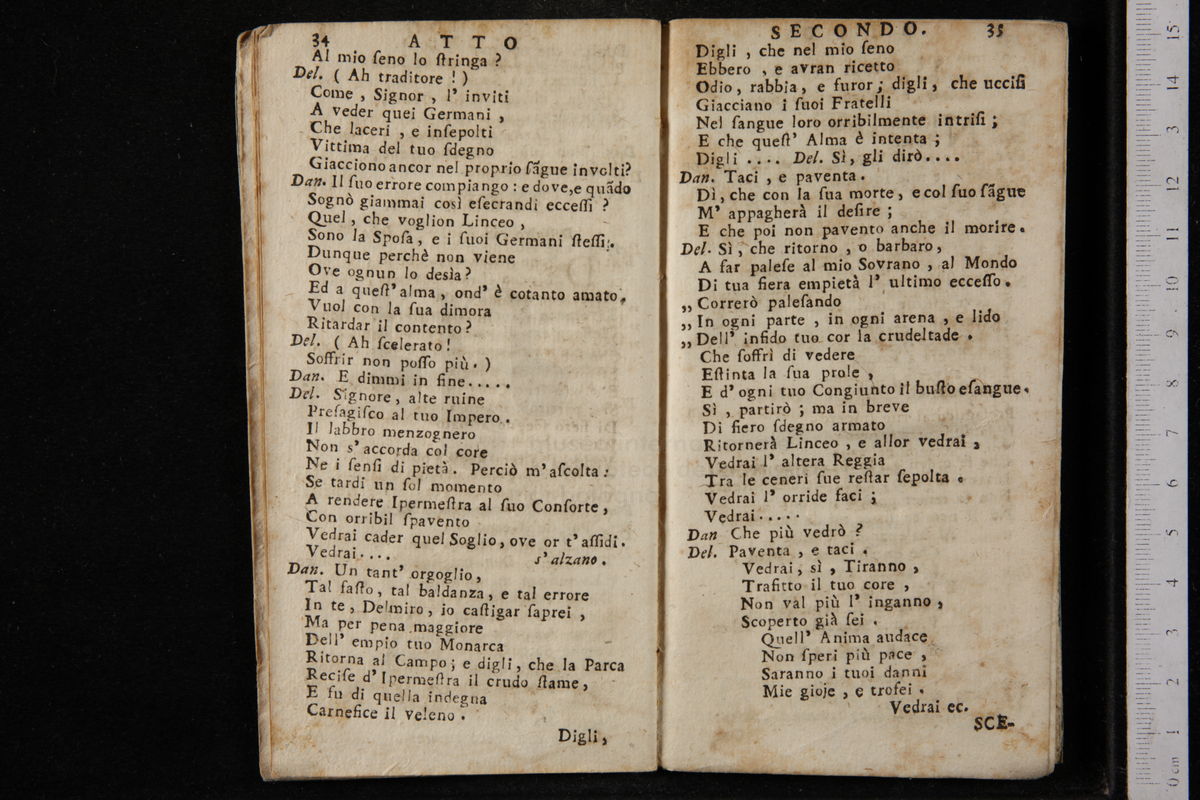 34 ATTO
Al mio ſeno lo ſtringa ?
Del. ( Ah traditore ! )
Come , Signor , l' inviti
A veder quei Germani ,
Che laceri , e inſepolti
Vittima del tuo ſdegno
Giacciono ancor nel proprio ſãgue involti?
Dan. Il ſuo errore compiango : e dove,e quãdo
Sognò giammai così eſecrandi ecceſſi ?
Quel , che voglion Linceo ,
Sono la Spoſa , e i ſuoi Germani ſteſſi.
Dunque perchè non viene
Ove ognun lo desìa?
Ed a queſt' alma , ond' è cotanto amato,
Vuol con la ſua dimora
Ritardar il contento ?
Del. ( Ah ſcelerato !
Soffrir non poſſo più. )
Dan. E dimmi in fine.....
Del. Signore, alte ruine
Preſagiſco al tuo Impero.
Il labbro menzognero
Non s' accorda col core
Ne i ſenſi di pietà. Perciò m' aſcolta:
Se tardi un ſol momento
A rendere Ipermeſtra al ſuo Conſorte,
Con orribil ſpavento
Vedrai cader quel Soglio, ove or t' aſſidi.
Vedrai.... s' alzano.
Dan. Un tant' orgoglio,
Tal faſto, tal baldanza, e tal errore
In te, Delmiro, io caſtigar ſaprei ,
Ma per pena maggiore
Dell' empio tuo Monarca
Ritorna al Campo; e digli, che la Parca
Reciſe d' Ipermeſtra il crudo ſtame,
E fu di quella indegna
Carnefice il veleno .
Digli,
SECONDO. 35
Digli , che nel mio ſeno
Ebbero , e avran ricetto
Odio, rabbia, e furor; digli, che ucciſi
Giacciano i ſuoi Fratelli
Nel ſangue loro orribilmente intriſi ;
E che queſt' Alma è intenta ;
Digli .... Del. Sì, gli dirò....
Dan. Taci , e paventa.
Dì, che con la ſua morte, e col ſuo ſãgue
M' appagherà il deſire ;
E che poi non pavento anche il morire.
Del. Sì, che ritorno , o barbaro,
A far paleſe al mio Sovrano , al Mondo
Di tua fiera empietà l' ultimo ecceſſo.
„ Correrò paleſando
„ In ogni parte , in ogni arena , e lido
„ Dell' infido tuo cor la crudeltade .
Che ſoffrì di vedere
Eſtinta la ſua prole ,
E d' ogni tuo Congiunto il buſto eſangue.
Sì , partirò ; ma in breve
Di fiero ſdegno armato
Ritornerà Linceo , e allor vedrai ,
Vedrai l' altera Reggia
Tra le ceneri ſue reſtar ſepolta .
Vedrai l' orride faci ;
Vedrai.....
Dan Che più vedrò ?
Del. Paventa , e taci .
Vedrai, sì , Tiranno ,
Trafitto il tuo core ,
Non val più l' inganno ,
Scoperto già ſei .
Quell' Anima audace
Non ſperi più pace ,
Saranno i tuoi danni
Mie gioje , e trofei .
Vedrai ec.
SCE-